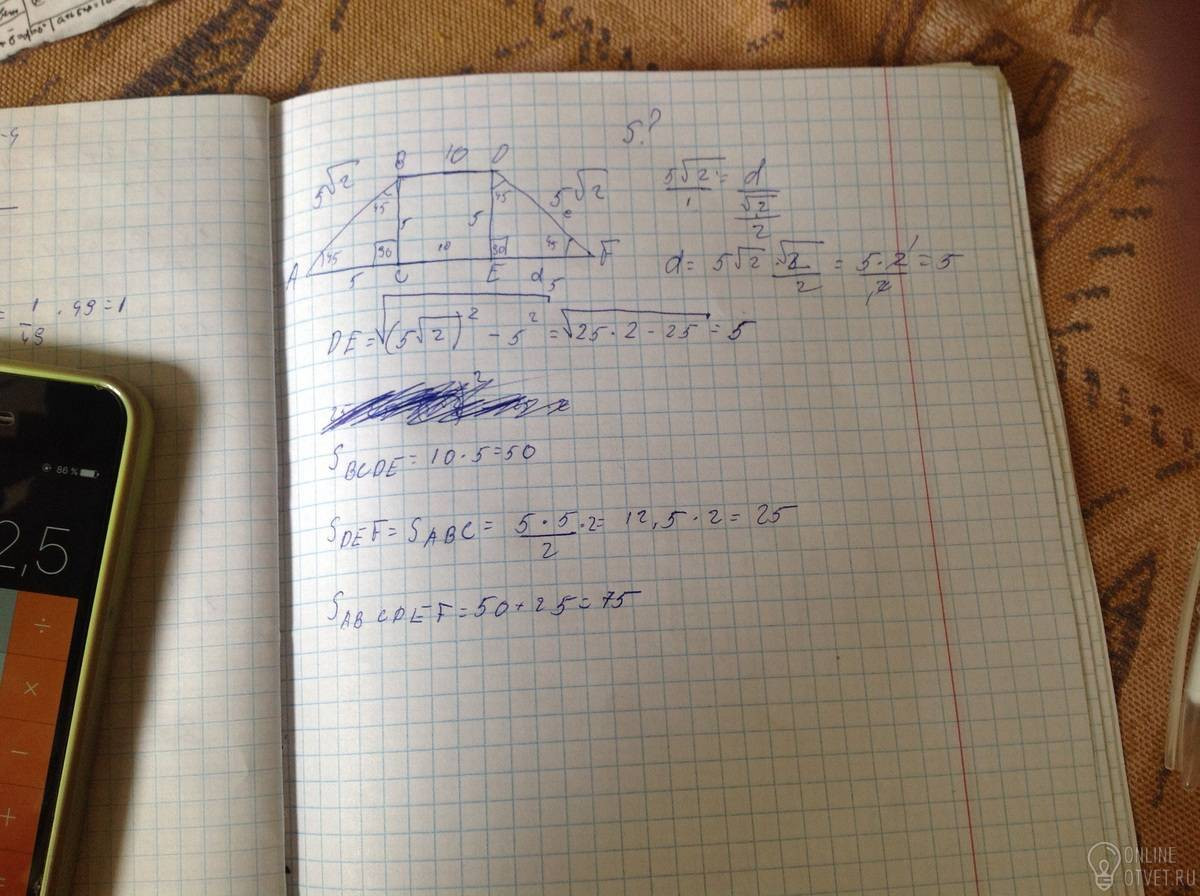 S?
B 10 D
5√2 45 5 5 45 5√2 e
A 45 90 10 90 45 F
5 C E d 5
5√2/1 = d/(√2/2)
d = 5√2 · √2/2 = 5·2/2 = 5
DE = √((5√2)² − 5²) = √(25·2−25) = 5
S BCDE = 10·5=50
S DEF = S ABC = 5·5/2 ·2= 12,5·2=25
S ABCDEF = 50+25=75
= 1/49 · 49=1
86 %
2,5
÷
×
−
+
=
ONLINE
OTVET.RU